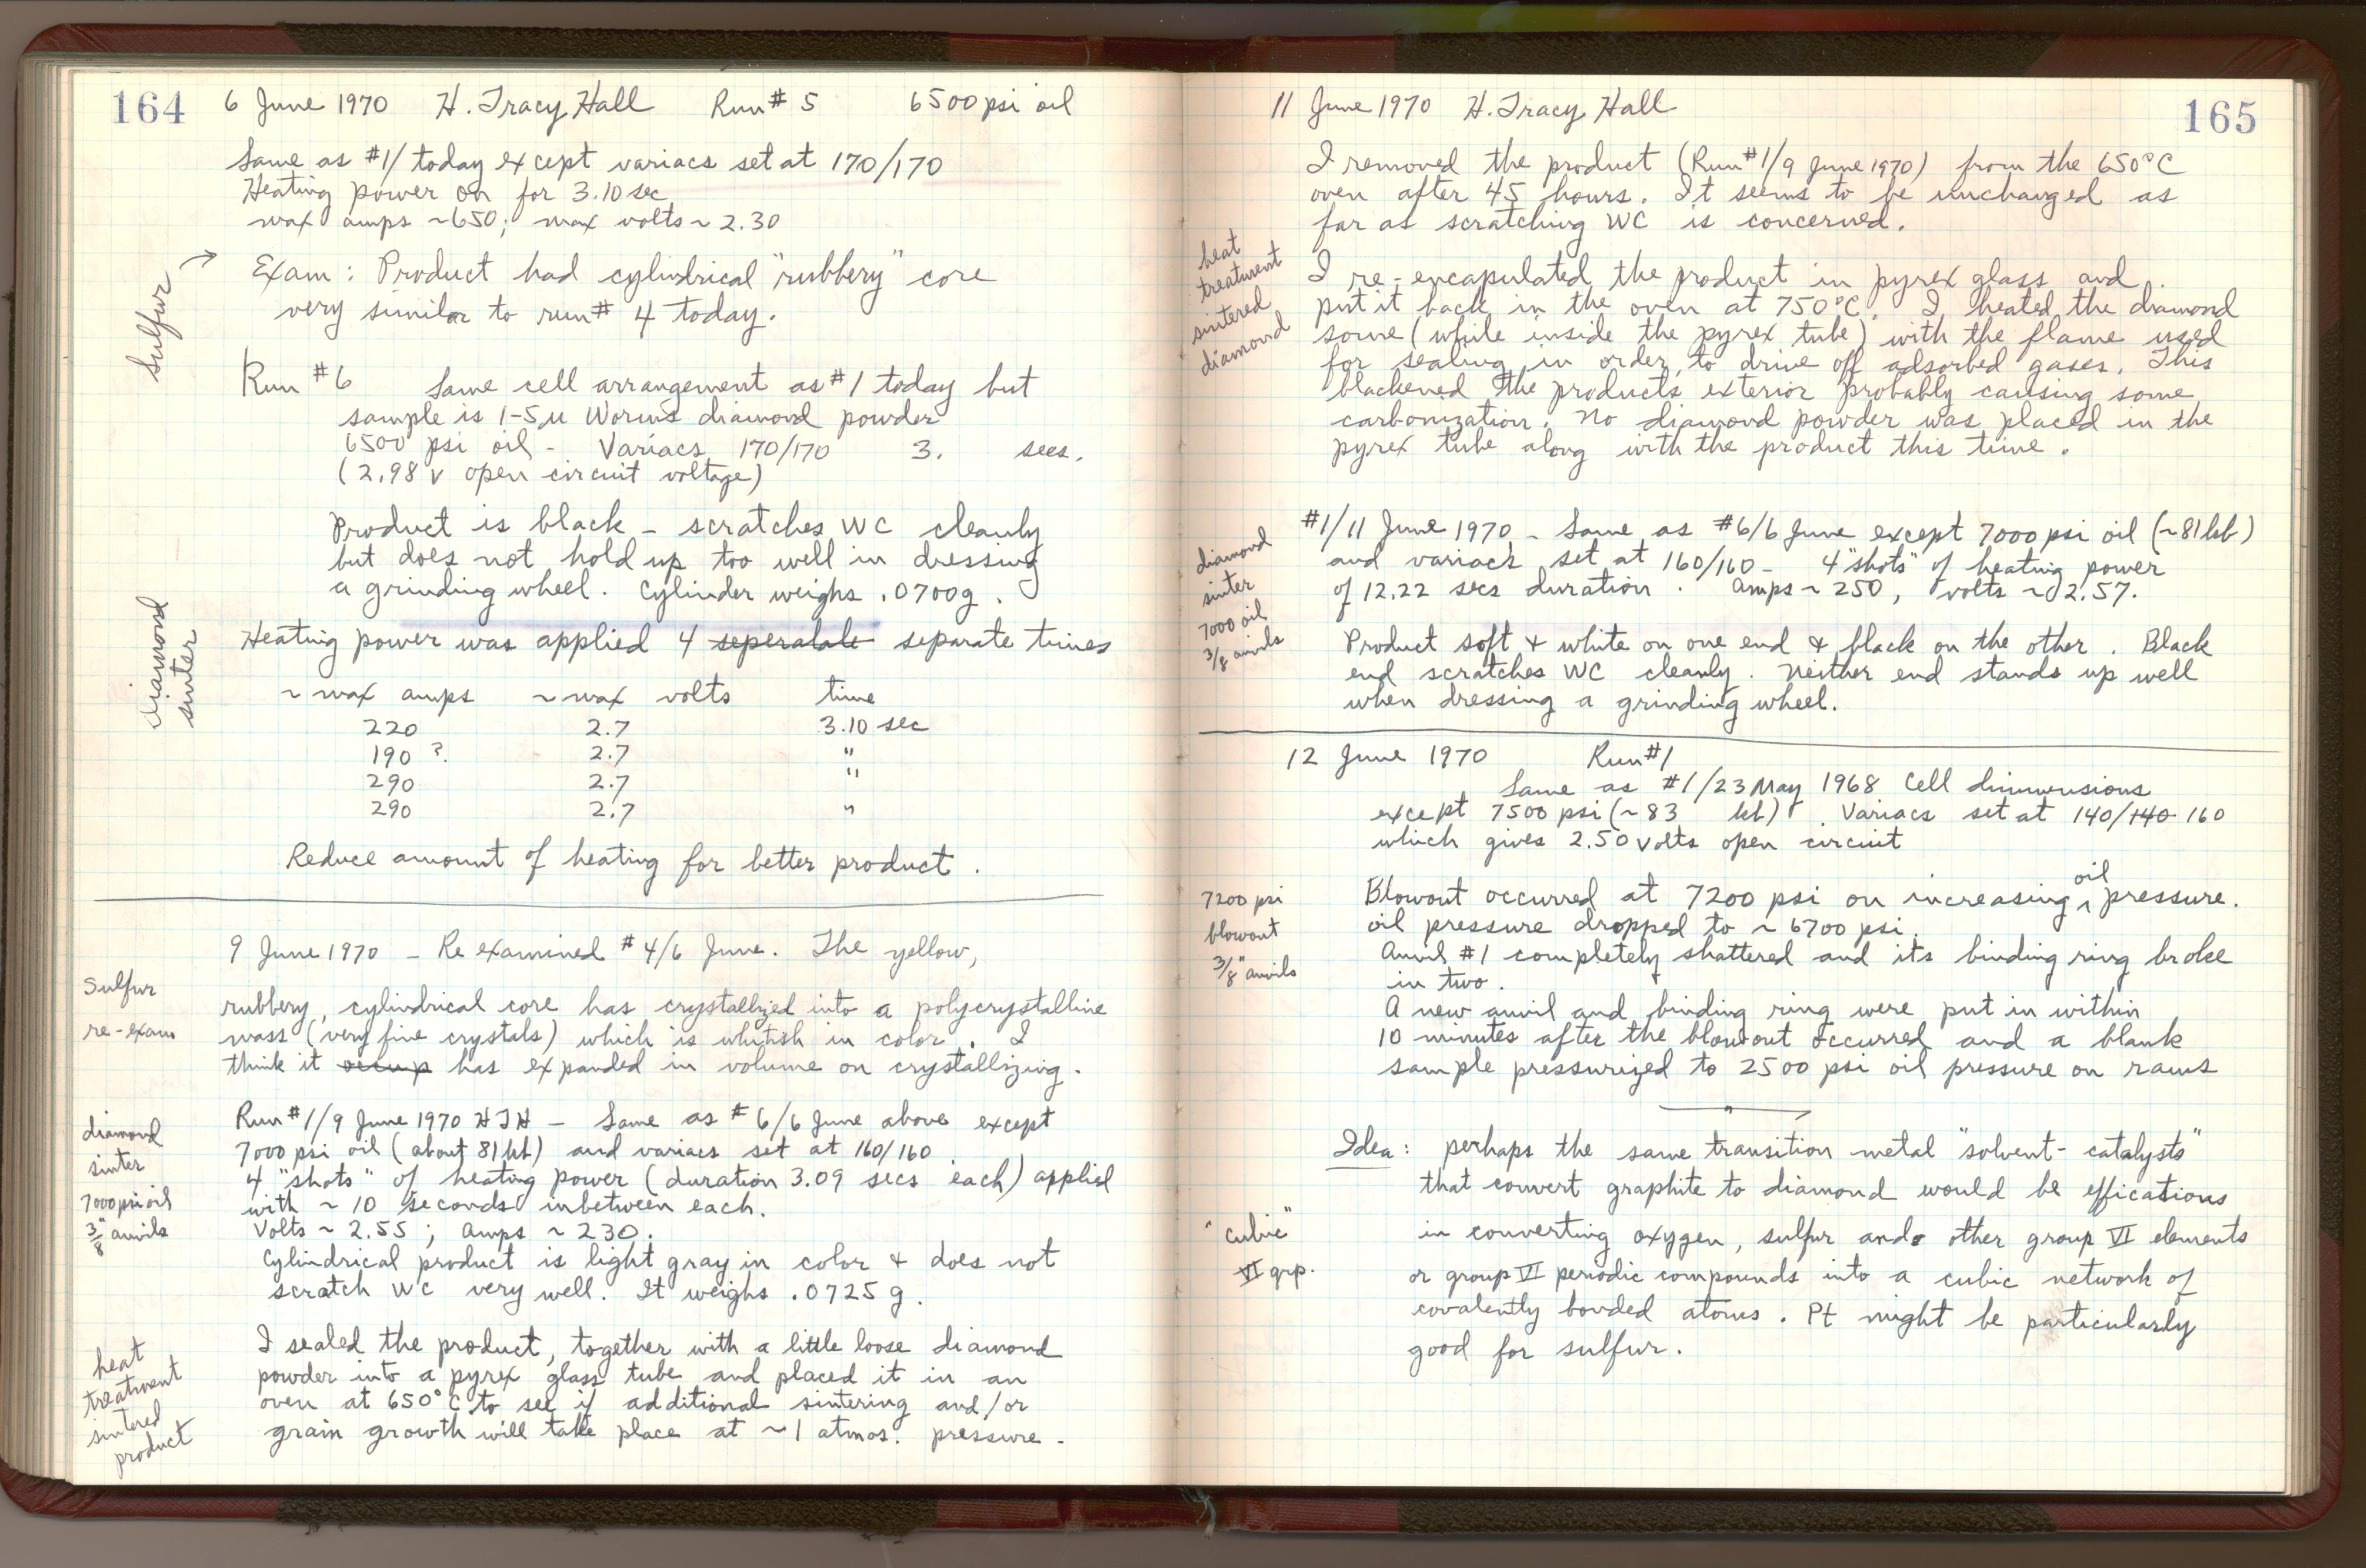 164 6 June 1970 H. Tracy Hall Run # 5 6500 psi oil
Same as #1/today except variacs set at 170/170
Heating power on for 3.10 sec
max amps ~650; max volts ~ 2.30
Sulfur →
Exam: Product had cylindrical "rubbery" core
very similar to run # 4 today.
Run #6 Same cell arrangement as #1 today but
sample is 1-5μ Worms diamond powder
6500 psi oil - Variacs 170/170 3. secs.
(2.98 v open circuit voltage)
Product is black - scratches WC cleanly
but does not hold up too well in dressing
a grinding wheel. Cylinder weighs .0700g.
diamond
sinter
Heating power was applied 4 seperatate separate times
~ max amps ~ max volts time
220 2.7 3.10 sec
190 ? 2.7 "
290 2.7 "
290 2.7 "
Reduce amount of heating for better product.
9 June 1970 - Re examined # 4/6 June. The yellow,
Sulfur
re-exam
rubbery, cylindrical core has crystallized into a polycrystalline
mass (very fine crystals) which is whitish in color. I
think it has expanded in volume on crystallizing.
diamond
sinter
7000 psi oil
3/8" anvils
Run #1/9 June 1970 HTH - Same as # 6/6 June above except
7000 psi oil (about 81 kb) and variacs set at 160/160.
4 "shots" of heating power (duration 3.09 secs each) applied
with ~ 10 seconds inbetween each.
Volts ~ 2.55; Amps ~ 230.
Cylindrical product is light gray in color & does not
scratch WC very well. It weighs .0725 g.
heat
treatment
sintered
product
I sealed the product, together with a little loose diamond
powder into a pyrex glass tube and placed it in an
oven at 650°C to see if additional sintering and/or
grain growth will take place at ~1 atmos. pressure.
11 June 1970 H. Tracy Hall 165
I removed the product (Run #1/9 June 1970) from the 650°C
oven after 45 hours. It seems to be unchanged as
far as scratching WC is concerned.
heat
treatment
sintered
diamond
I re-encapulated the product in pyrex glass and
put it back in the oven at 750°C. I heated the diamond
some (while inside the pyrex tube) with the flame used
for sealing in order to drive off adsorbed gases. This
blackened the products exterior probably causing some
carbonization. No diamond powder was placed in the
pyrex tube along with the product this time.
diamond
sinter
7000 oil
3/8 anvils
#1/11 June 1970 - Same as #6/6 June except 7000 psi oil (~81 kb)
and variacs set at 160/160 - 4 "shots" of heating power
of 12.22 secs duration. Amps ~ 250, volts ~ 2.57.
Product soft & white on one end & black on the other. Black
end scratches WC cleanly. Neither end stands up well
when dressing a grinding wheel.
12 June 1970 Run #1
Same as #1/23 May 1968 Cell dimmensions
except 7500 psi (~83 kb). Variacs set at 140/140 160
which gives 2.50 volts open circuit
7200 psi
blowout
3/8" anvils
Blowout occurred at 7200 psi on increasing oil pressure.
oil pressure dropped to ~ 6700 psi.
Anvil #1 completely shattered and its binding ring broke
in two.
A new anvil and binding ring were put in within
10 minutes after the blowout occurred and a blank
sample pressurized to 2500 psi oil pressure on rams
Idea: perhaps the same transition metal "solvent-catalysts"
that convert graphite to diamond would be efficatious
"cubic"
VI grp.
in converting oxygen, sulfur and other group VI elements
or group VI periodic compounds into a cubic network of
covalently bonded atoms. Pt might be particularly
good for sulfur.